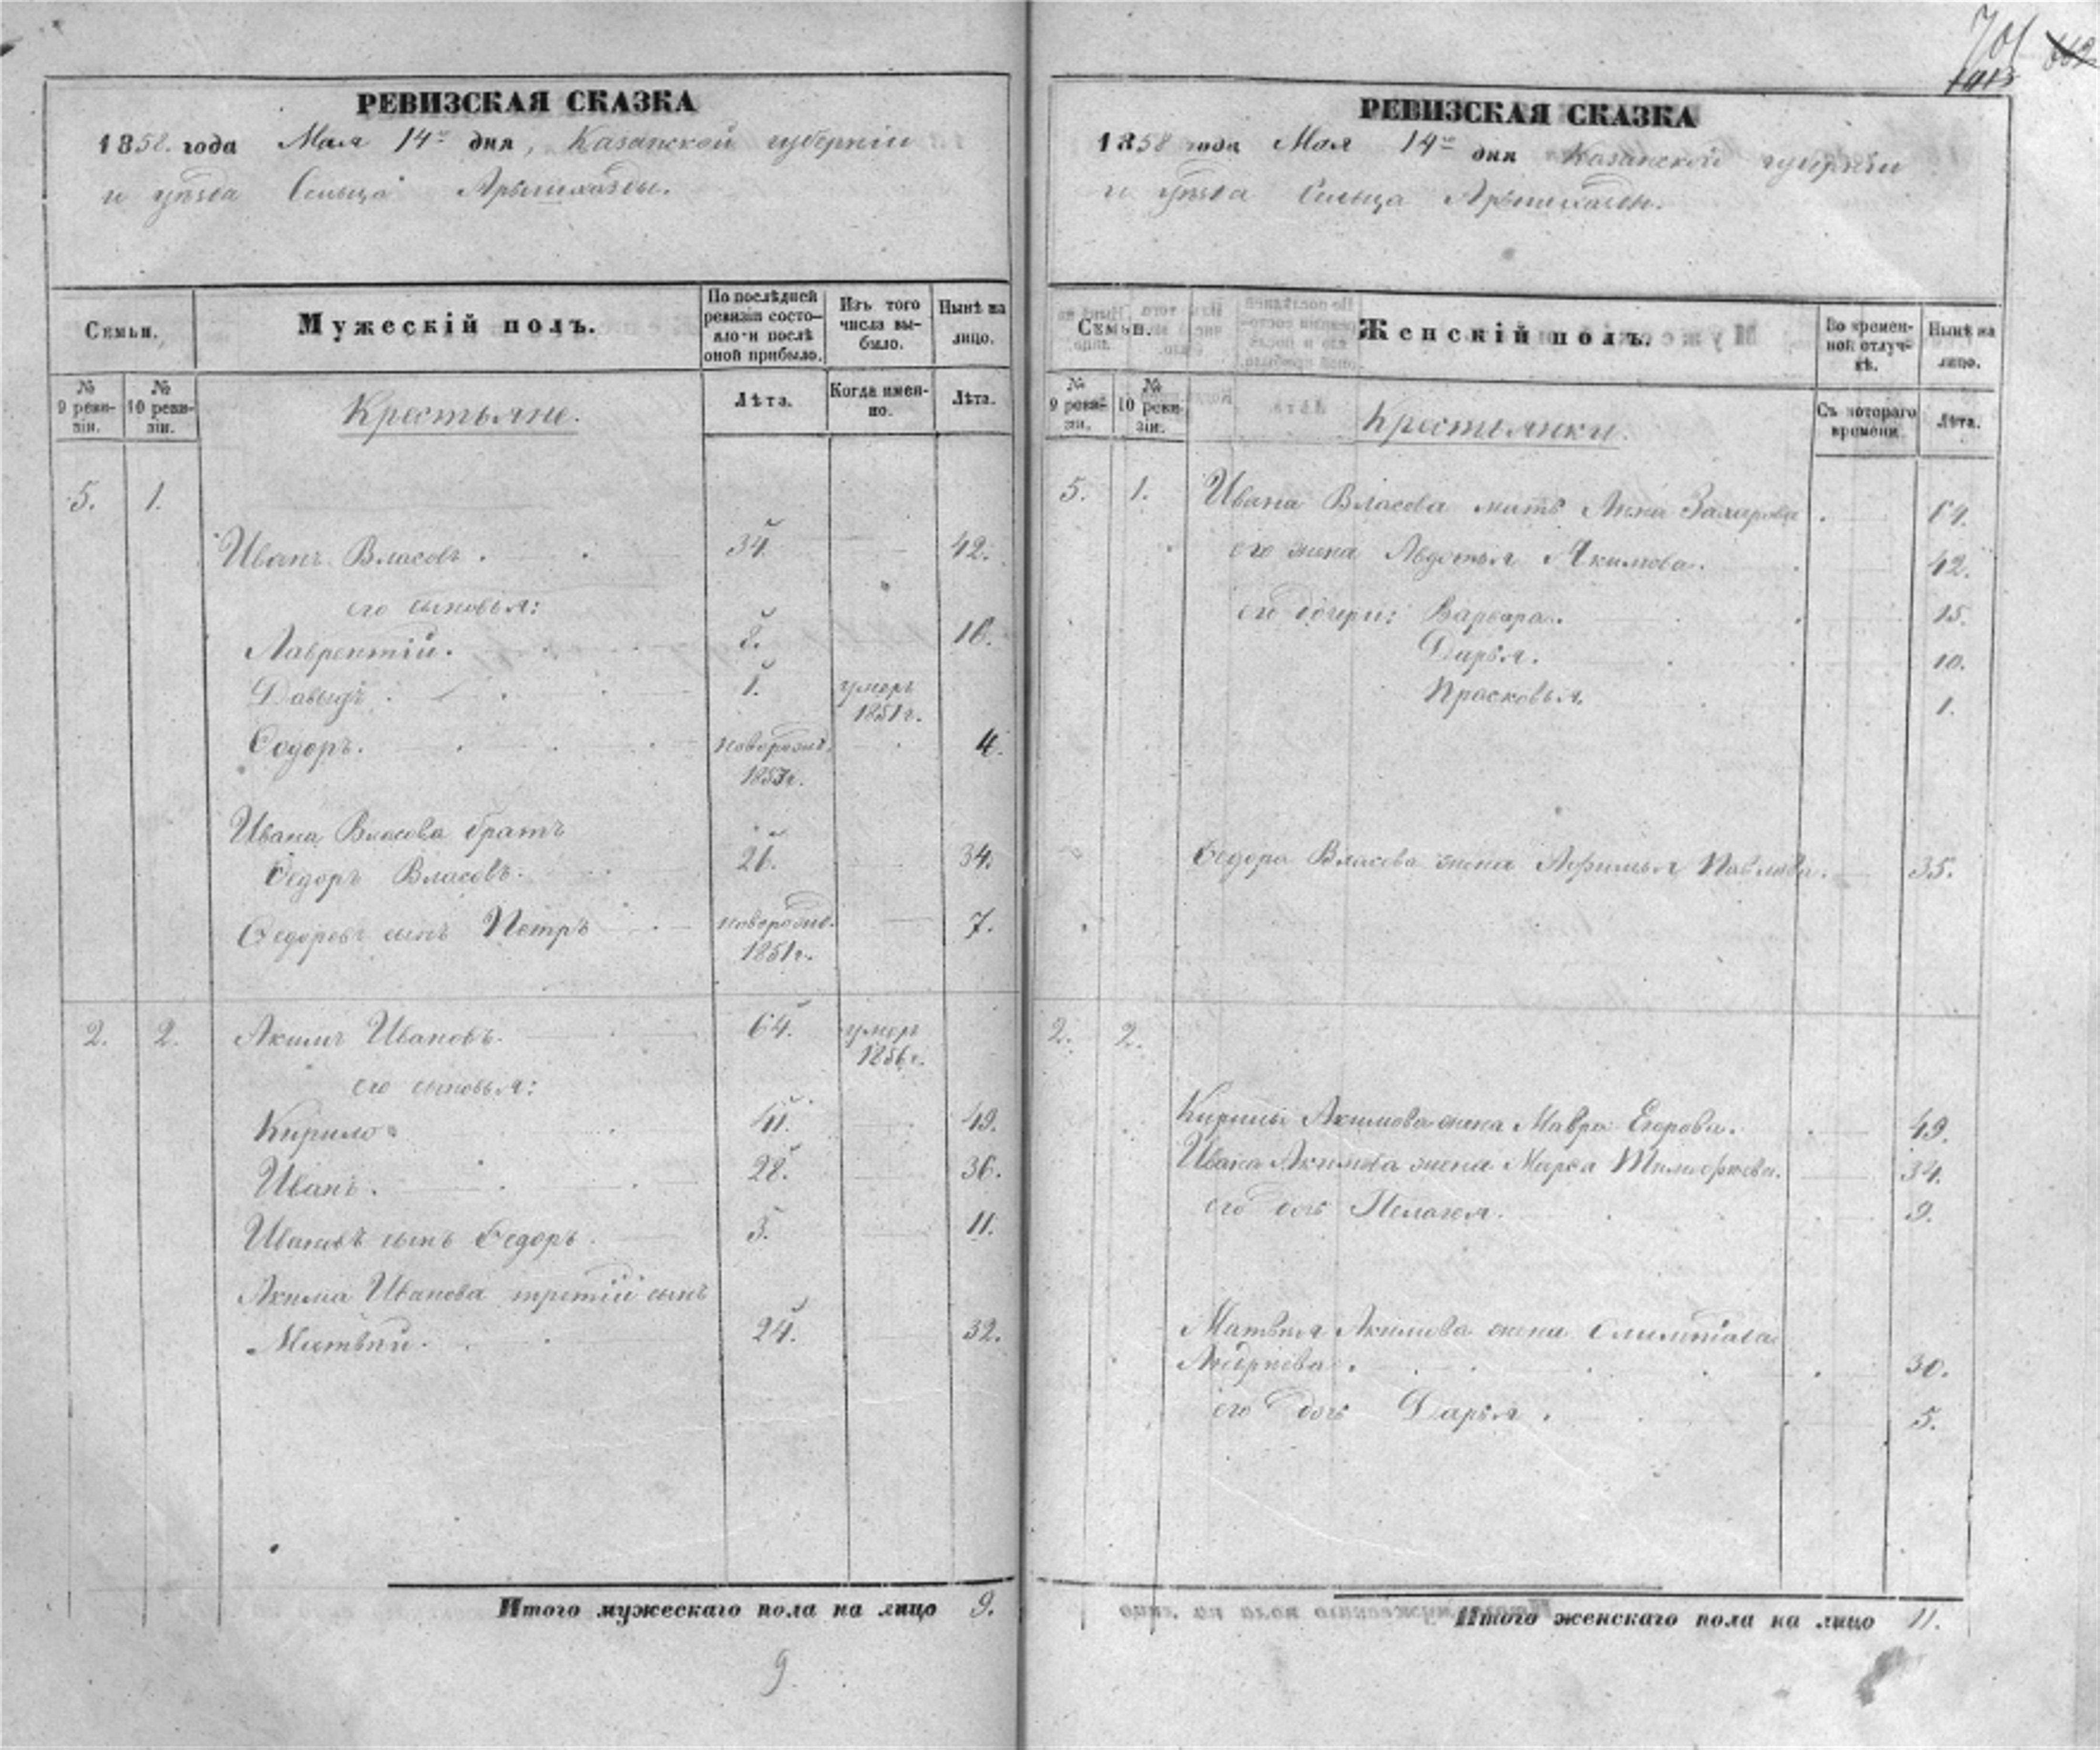 701
РЕВИЗСКАЯ СКАЗКА
1858. года Мая 14го дня, Казанской губерніи
и уѣзда Сельца Арышхазды.
Семьи.
Мужескій полъ.
По послѣдней ревизіи состояло и послѣ оной прибыло.
Изъ того числа выбыло.
Нынѣ на лицо.
№ 9 ревизіи.
№ 10 ревизіи.
Крестьяне.
Лѣта.
Когда именно.
Лѣта.
5. 1.
Иванъ Власовъ. 34. 42.
его сыновья:
Лаврентій. 8. 16.
Давыдъ. 1. умеръ 1851 г.
Ѳедоръ. новорожд. 4.
Ивана Власова братъ
Ѳедоръ Власовъ. 26. 34.
Ѳедоровъ сынъ Петръ новорожд. 1851 г. 7.
2. 2. Акимъ Ивановъ. 64. умеръ 1856 г.
его сыновья:
Кирило 41. 49.
Иванъ. 28. 36.
Ивановъ сынъ Ѳедоръ. 3. 11.
Акима Иванова третій сынъ
Матвѣй. 24. 32.
Итого мужескаго пола на лицо 9.
9
РЕВИЗСКАЯ СКАЗКА
1858 года Мая 14го дня Казанской губерніи
и уѣзда Сельца Арышхазды.
Семьи.
Женскій полъ.
Во временной отлучкѣ.
Нынѣ на лицо.
№ 9 ревизіи.
№ 10 ревизіи.
Крестьянки.
Съ котораго времени
Лѣта.
5. 1. Ивана Власова мать Анна Захарова. 64.
его жена Авдотья Акимова. 42.
его дочери: Варвара. 15.
Дарья. 10.
Прасковья. 1.
Ѳедора Власова жена Афимья Павлова. 35.
2. 2.
Кирилы Акимова жена Мавра Егорова. 49.
Ивана Акимова жена Марѳа Тимофѣева. 34.
его дочь Пелагея. 9.
Матвѣя Акимова жена
Андрѣева. 30.
его дочь Дарья. 5.
Итого женскаго пола на лицо 11.